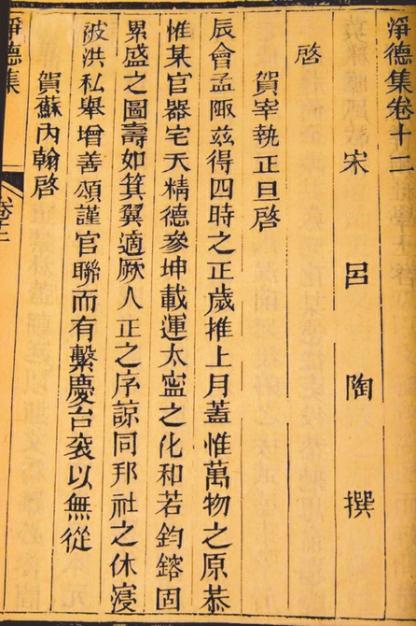 淨德集卷十二
宋 呂 陶 撰
啓
賀宰執正旦啓
辰會孟陬茲得四時之正歲推上月蓋惟萬物之原恭
惟某官器宅天精德參坤載運太寍之化和若鈞鎔固
累盛之圖壽如箕翼適厥人正之序諒同邦社之休寖
被洪私舉增善頌謹官聯而有繫慶台衮以無從
賀蘇內翰啓
淨德集
卷十二